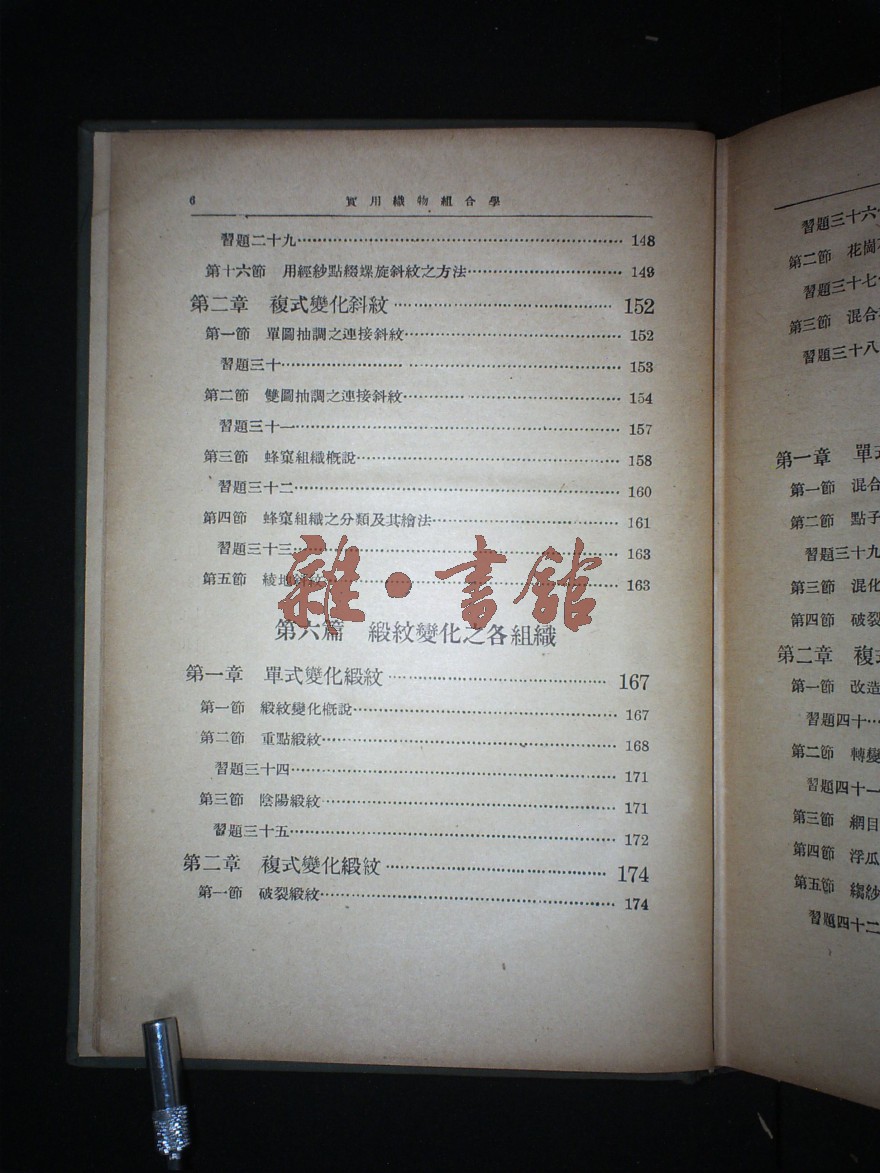 6 實用織物組合學
習題二十九 148
第十六節 用經紗點綴螺旋斜紋之方法 149
第二章 複式變化斜紋 152
第一節 單圖抽調之連接斜紋 152
習題三十 153
第二節 雙圖抽調之連接斜紋 154
習題三十一 157
第三節 蜂窠組織概說 158
習題三十二 160
第四節 蜂窠組織之分類及其繪法 161
習題三十三 163
第五節 綾地斜紋 163
雜·書館
第六篇 緞紋變化之各組織
第一章 單式變化緞紋 167
第一節 緞紋變化概說 167
第二節 重點緞紋 168
習題三十四 171
第三節 陰陽緞紋 171
習題三十五 172
第二章 複式變化緞紋 174
第一節 破裂緞紋 174
習題三十六
第二節 花崗
習題三十七
第三節 混合
習題三十八
第一章 單式
第一節 混合
第二節 點子
習題三十九
第三節 混化
第四節 破裂
第二章 複式
第一節 改造
習題四十
第二節 轉變
習題四十一
第三節 網目
第四節 浮瓜
第五節 縐紗
習題四十二